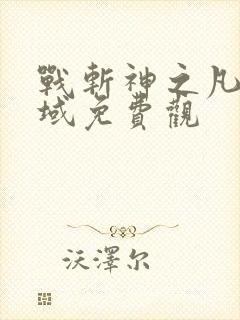 戰斬神之凡
域免費觀
沃澤尔